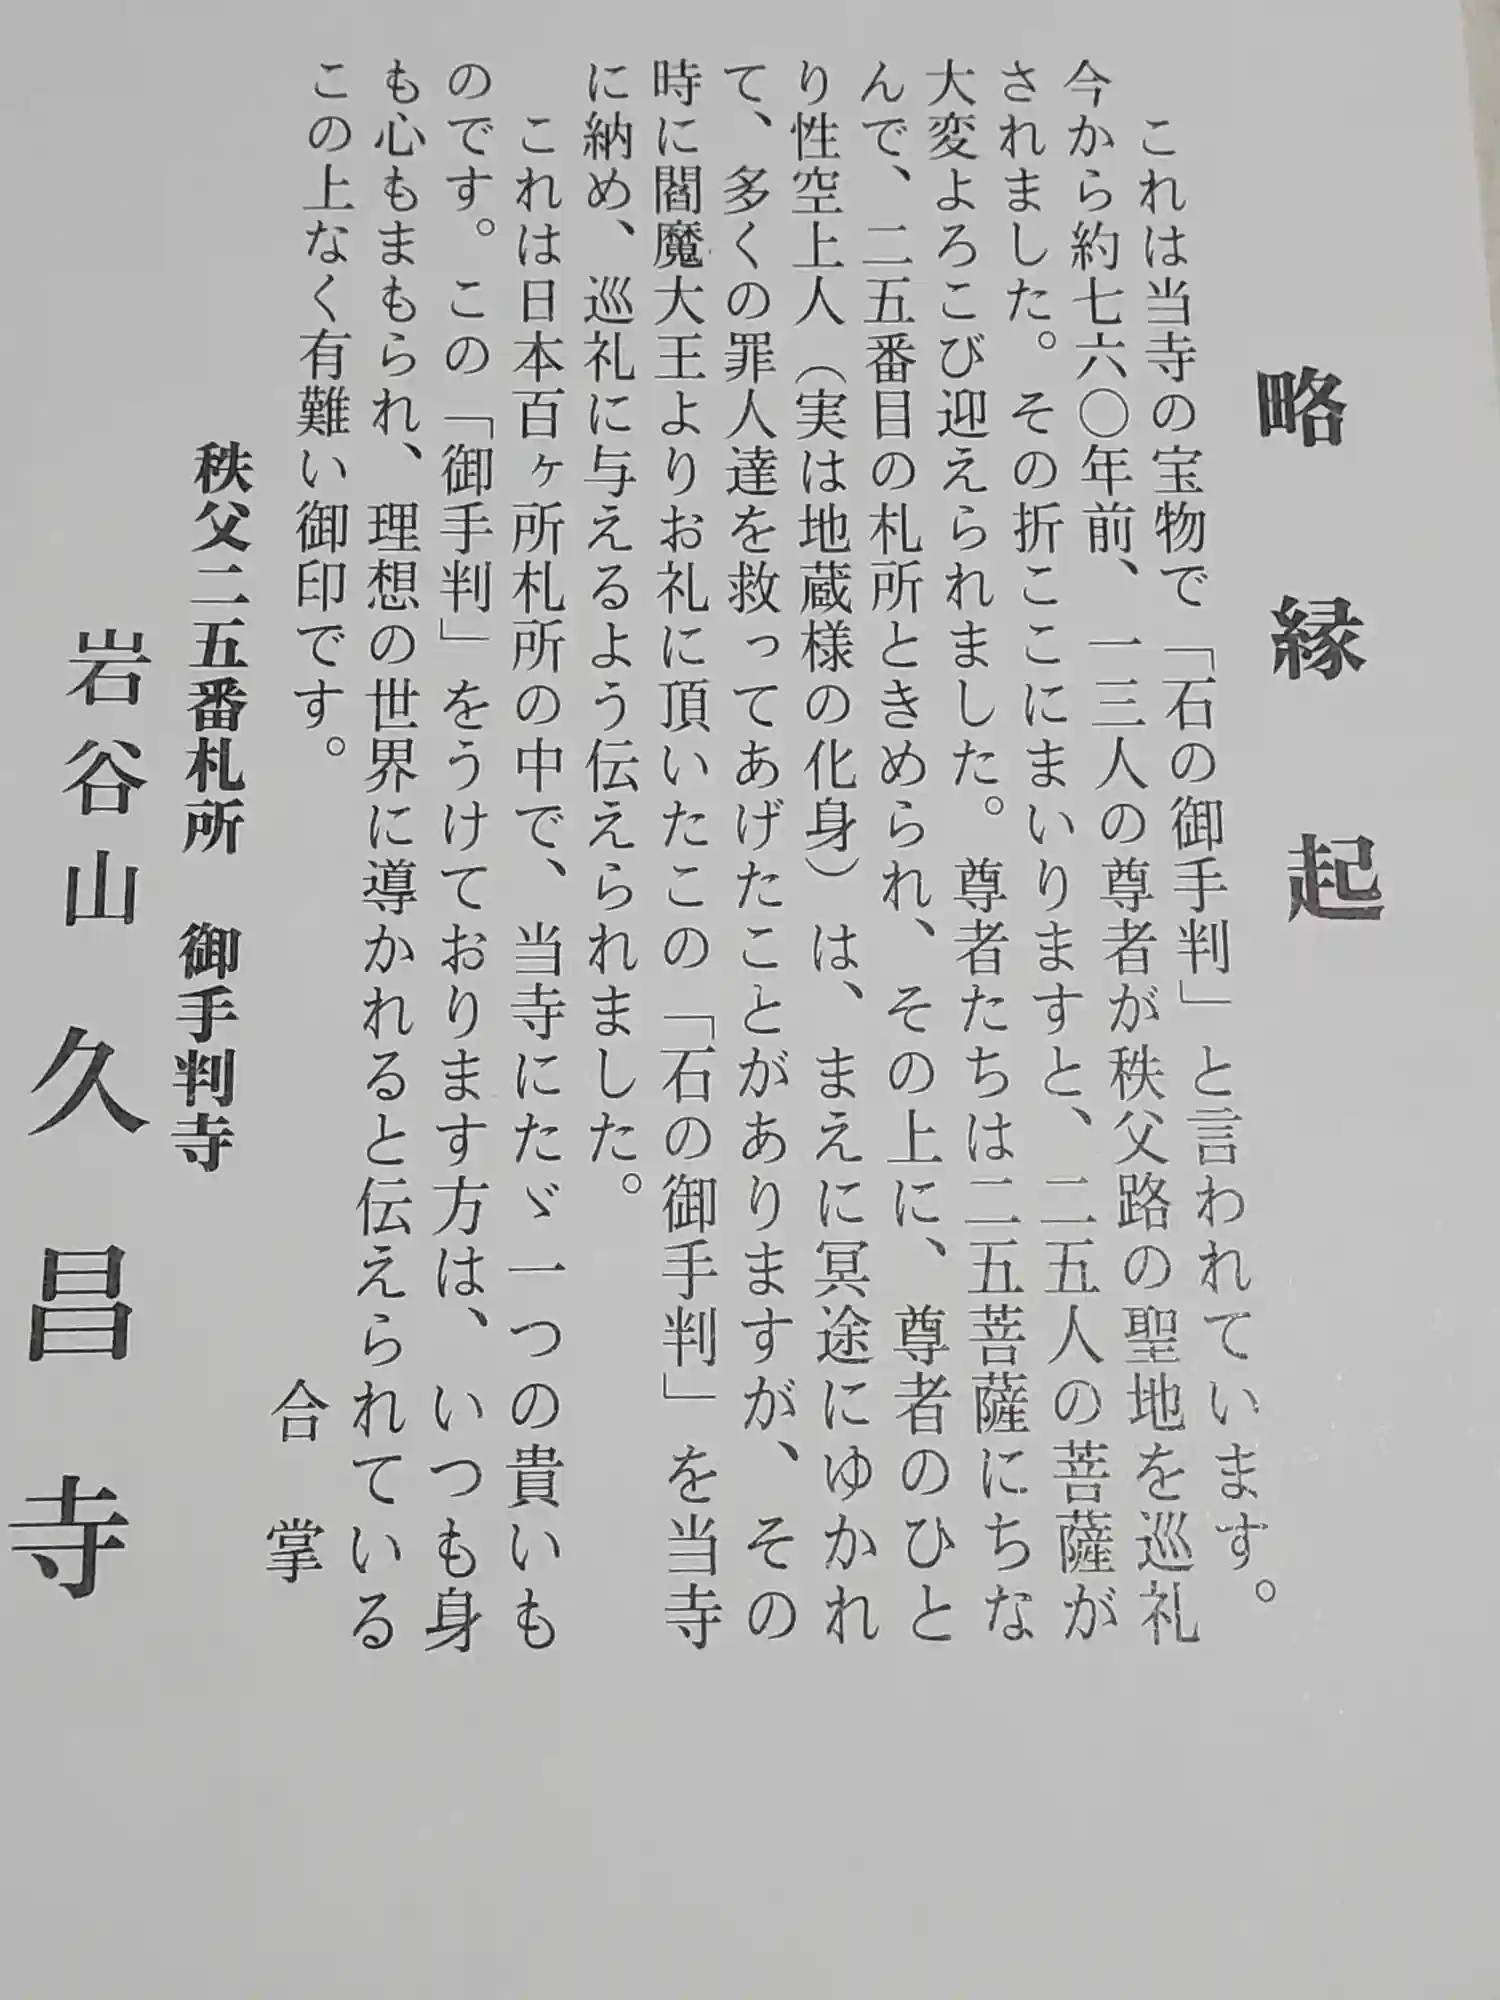 略縁起
これは当寺の宝物で「石の御手判」と言われています。
今から約七六〇年前、一三人の尊者が秩父路の聖地を巡礼
されました。その折ここにまいりますと、二五人の菩薩が
大変よろこび迎えられました。尊者たちは二五菩薩にちな
んで、二五番目の札所ときめられ、その上に、尊者のひと
り性空上人（実は地蔵様の化身）は、まえに冥途にゆかれ
て、多くの罪人達を救ってあげたことがありますが、その
時に閻魔大王よりお礼に頂いたこの「石の御手判」を当寺
に納め、巡礼に与えるよう伝えられました。
これは日本百ヶ所札所の中で、当寺にたゞ一つの貴いも
のです。この「御手判」をうけております方は、いつも身
も心もまもられ、理想の世界に導かれると伝えられている
この上なく有難い御印です。
合掌
秩父二五番札所 御手判寺
岩谷山 久昌寺